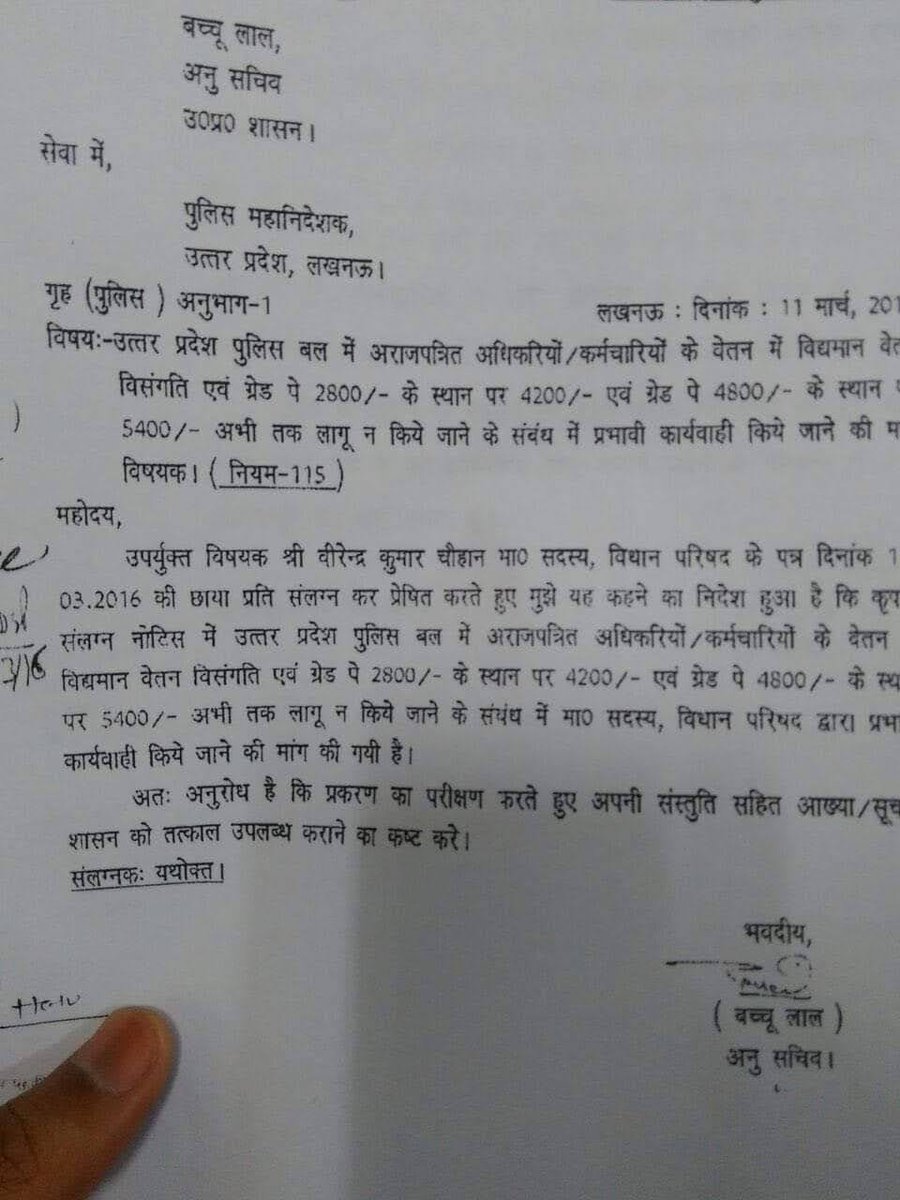 बच्चू लाल,
अनु सचिव
उ0प्र0 शासन।
सेवा में,
पुलिस महानिदेशक,
उत्तर प्रदेश, लखनऊ।
गृह (पुलिस ) अनुभाग-1
लखनऊ : दिनांक : 11 मार्च, 201
विषयः-उत्तर प्रदेश पुलिस बल में अराजपत्रित अधिकरियों/कर्मचारियों के वेतन में विद्यमान वेत
विसंगति एवं ग्रेड पे 2800/- के स्थान पर 4200/- एवं ग्रेड पे 4800/- के स्थान
5400/- अभी तक लागू न किये जाने के संबंध में प्रभावी कार्यवाही किये जाने की
विषयक। ( नियम-115 )
महोदय,
उपर्युक्त विषयक श्री वीरेन्द्र कुमार चौहान मा0 सदस्य, विधान परिषद के पत्र दिनांक 1
03.2016 की छाया प्रति संलग्न कर प्रेषित करते हुए मुझे यह कहने का निदेश हुआ है कि कृप
संलग्न नोटिस में उत्तर प्रदेश पुलिस बल में अराजपत्रित अधिकरियों/कर्मचारियों के वेतन
विद्यमान वेतन विसंगति एवं ग्रेड पे 2800/- के स्थान पर 4200/- एवं ग्रेड पे 4800/- के स्था
पर 5400/- अभी तक लागू न किये जाने के संबंध में मा0 सदस्य, विधान परिषद द्वारा प्रभा
कार्यवाही किये जाने की मांग की गयी है।
अतः अनुरोध है कि प्रकरण का परीक्षण करते हुए अपनी संस्तुति सहित आख्या/सूच
शासन को तत्काल उपलब्ध कराने का कष्ट करे।
संलग्नकः यथोक्त।
भवदीय,
( बच्चू लाल )
अनु सचिव।